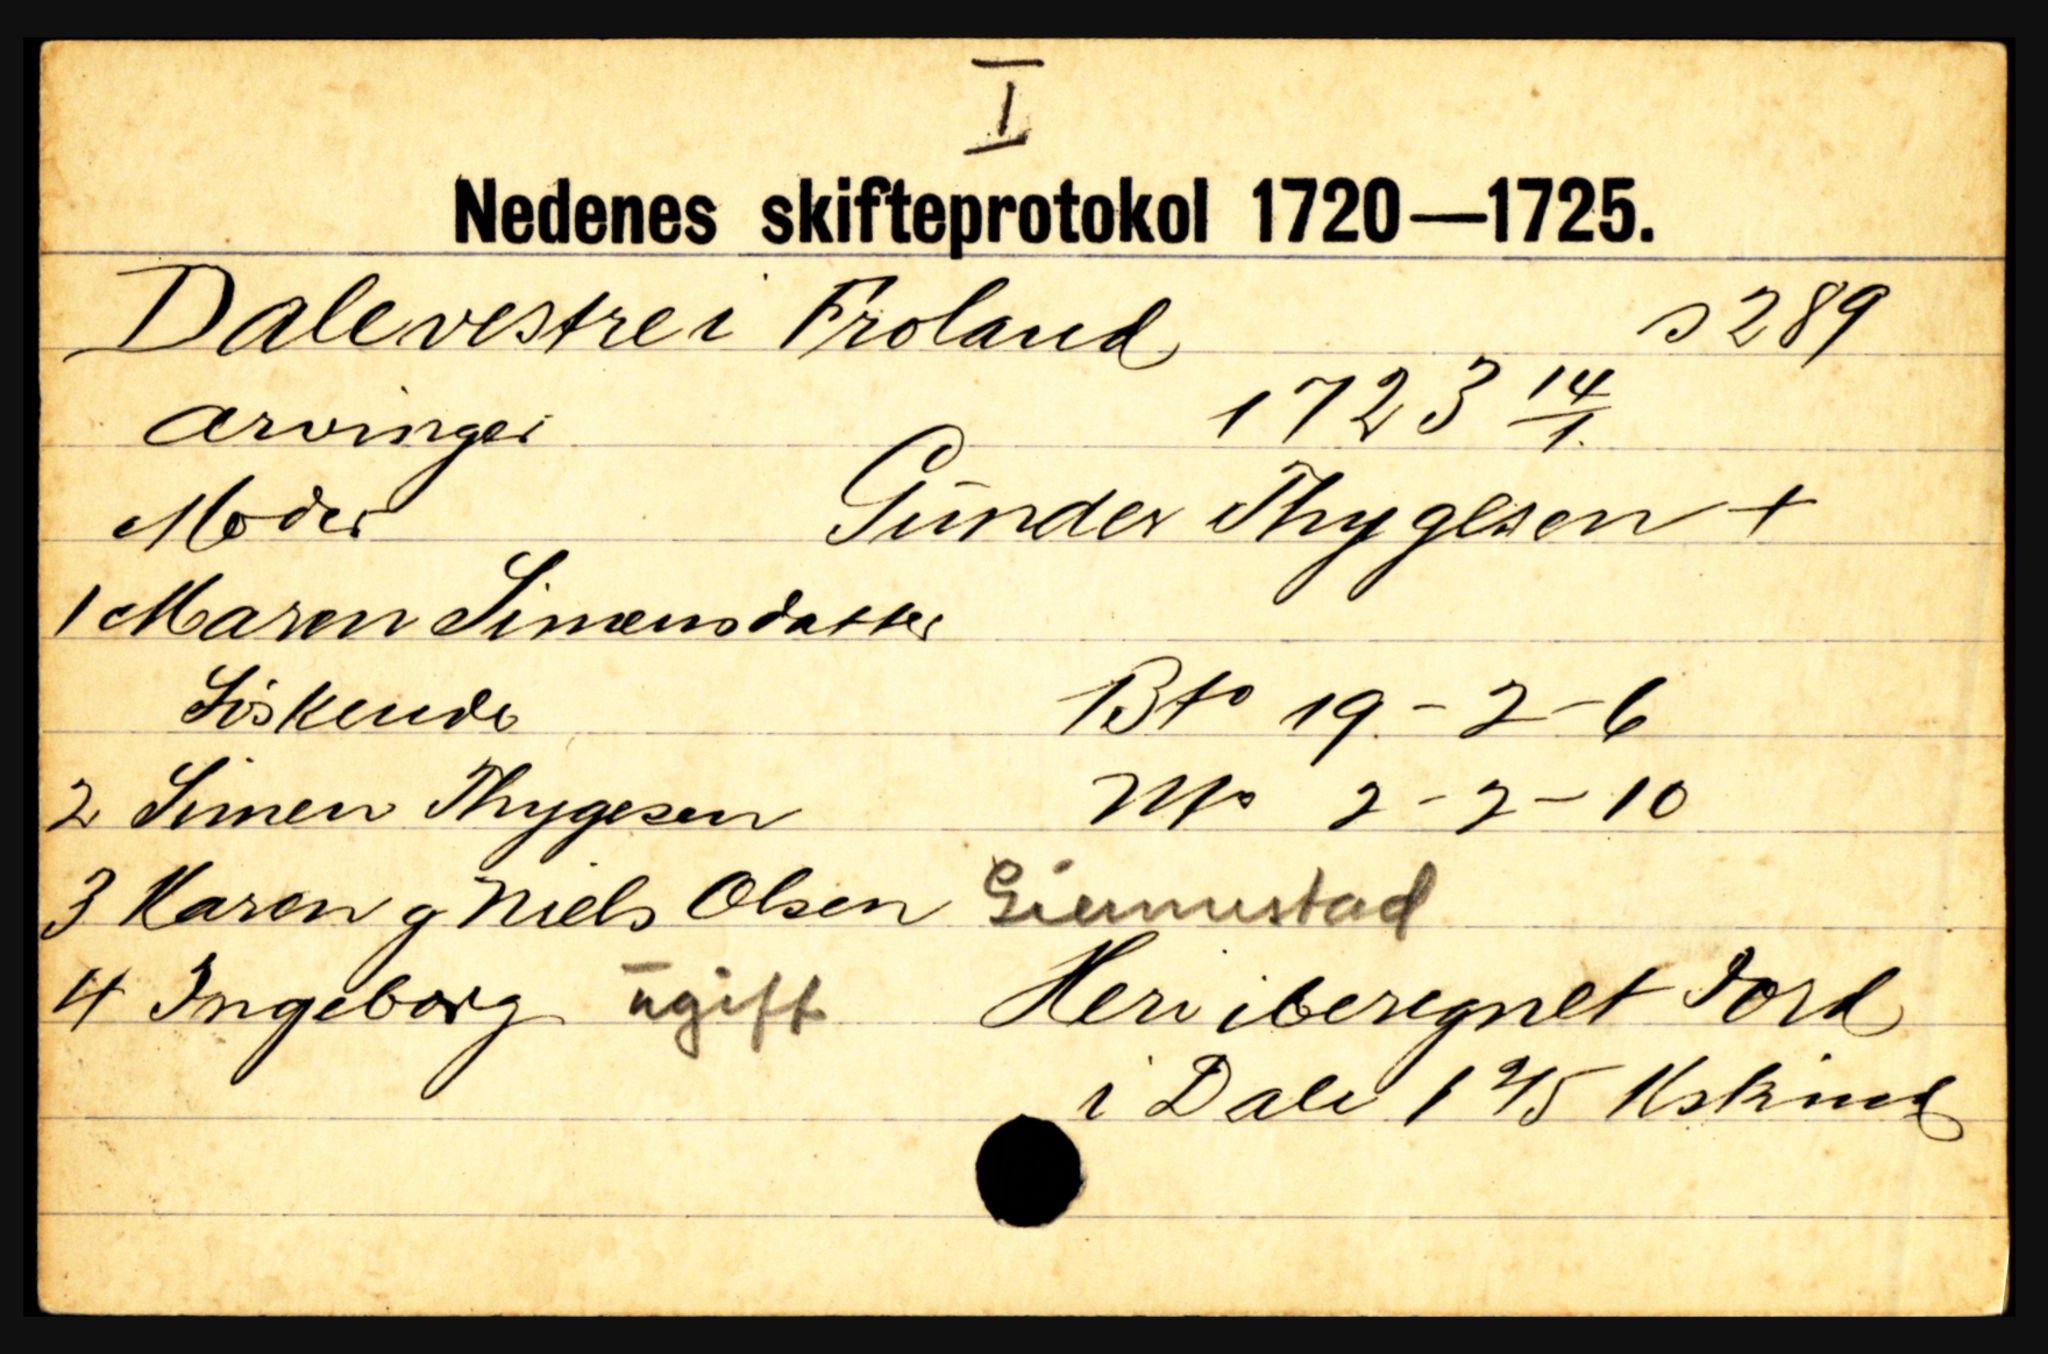 I
Nedenes skifteprotokol 1720—1725.
Dale vestre i Froland s 289
Arvinger 1723 14/1
Moder Gunder Thygesen +
1 Maren Simensdatter
Søskende Bto 19 - 2 - 6
2 Simen Thygesen Nto 2 - 2 - 10
3 Karen g Niels Olsen Giermustad
4 Ingeborg ugift Heri iberegnet Jord
i Dale 1 2/5 Kskind